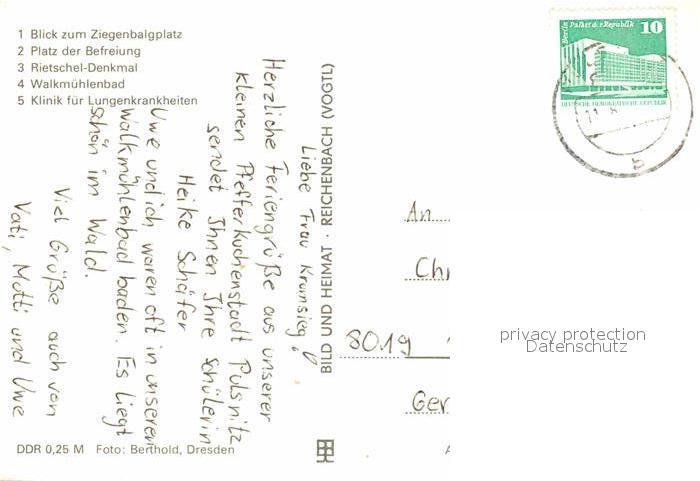 1 Blick zum Ziegenbalgplatz
2 Platz der Befreiung
3 Rietschel-Denkmal
4 Walkmühlenbad
5 Klinik für Lungenkrankheiten
Liebe Frau Kromsieg!
Herzliche Feriengrüße aus unserer
kleinen Pfefferkuchenstadt Pulsnitz
sendet Ihnen Ihre Schülerin
Heike Schäfer
Uwe und ich waren oft in unserem
Walkmühlenbad baden. Es liegt
schön im Wald.
Viel Grüße auch von
Vati, Mutti und Uwe
DDR 0,25 M Foto: Berthold, Dresden
BILD UND HEIMAT · REICHENBACH (VOGTL)
Berlin Palast d. Republik 10
DEUTSCHE DEMOKRATISCHE REPUBLIK
b
An
Chr
8019
Ger
privacy protection
Datenschutz